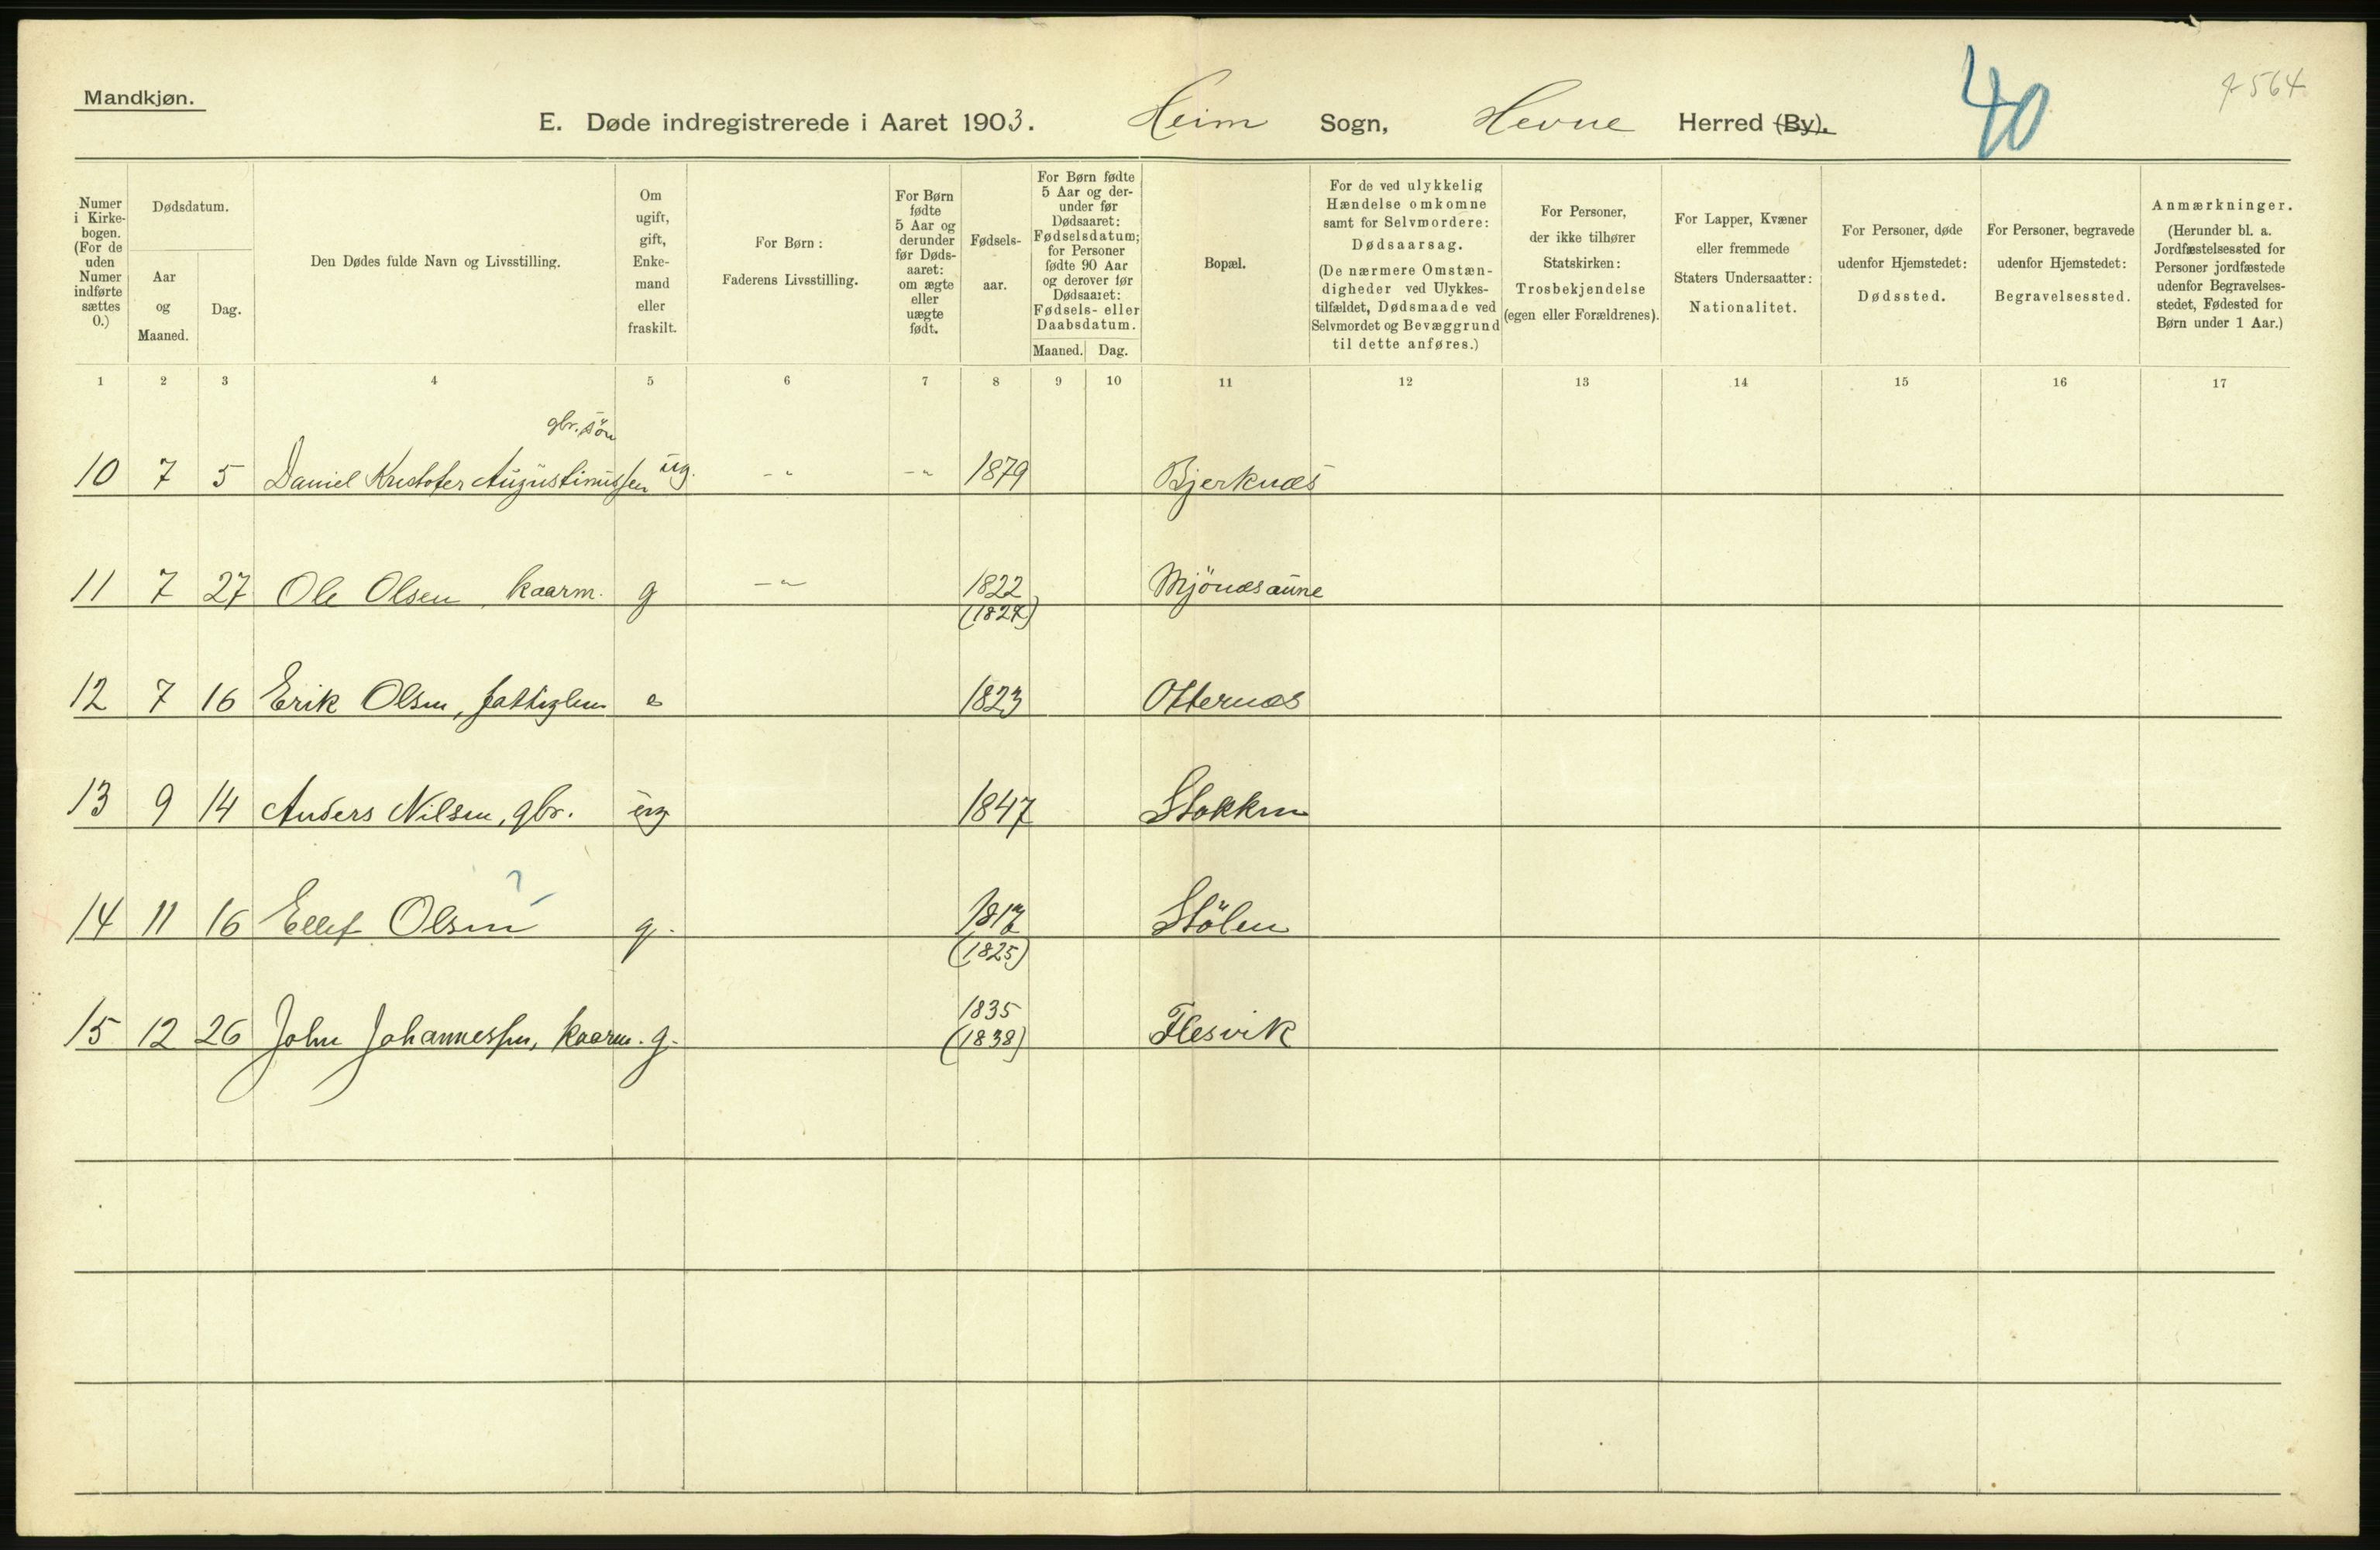 Mandkjøn.
E. Døde indregistrerede i Aaret 1903. Heim Sogn, Hevne Herred (By).
40
7564
Numer i Kirkebogen. (For de uden Numer indførte sættes 0.)
Dødsdatum.
Aar og Maaned.
Dag.
Den Dødes fulde Navn og Livsstilling.
Om ugift, gift, Enkemand eller fraskilt.
For Børn: Faderens Livsstilling.
For Børn fødte 5 Aar og derunder før Dødsaaret: om ægte eller uægte født.
Fødselsaar.
For Børn fødte 5 Aar og derunder før Dødsaaret: Fødselsdatum; for Personer fødte 90 Aar og derover før Dødsaaret: Fødsels- eller Daabsdatum.
Maaned. Dag.
Bopæl.
For de ved ulykkelig Hændelse omkomne samt for Selvmordere: Dødsaarsag. (De nærmere Omstændigheder ved Ulykkestilfældet, Dødsmaade ved Selvmordet og Bevæggrund til dette anføres.)
For Personer, der ikke tilhører Statskirken: Trosbekjendelse (egen eller Forældrenes).
For Lapper, Kvæner eller fremmede Staters Undersaatter: Nationalitet.
For Personer, døde udenfor Hjemstedet: Dødssted.
For Personer, begravede udenfor Hjemstedet: Begravelsessted.
Anmærkninger. (Herunder bl. a. Jordfæstelsessted for Personer jordfæstede udenfor Begravelsesstedet, Fødested for Børn under 1 Aar.)
1 2 3 4 5 6 7 8 9 10 11 12 13 14 15 16 17
gbr. sön
10 7 5 Daniel Kristofer Augustinussen ug. -"- -"- 1879 Bjerknæs
11 7 27 Ole Olsen, kaarm. g -"- 1822 Mjönæsaune
(1824)
12 7 16 Erik Olsen, fattiglem e 1823 Otternæs
13 9 14 Anders Nilsen, gbr. ug 1847 Stokken
14 11 16 Ellef Olsen ? g. 1817 Stölen
(1825)
1835
15 12 26 John Johannessen, kaarm. g. (1838) Flesvik